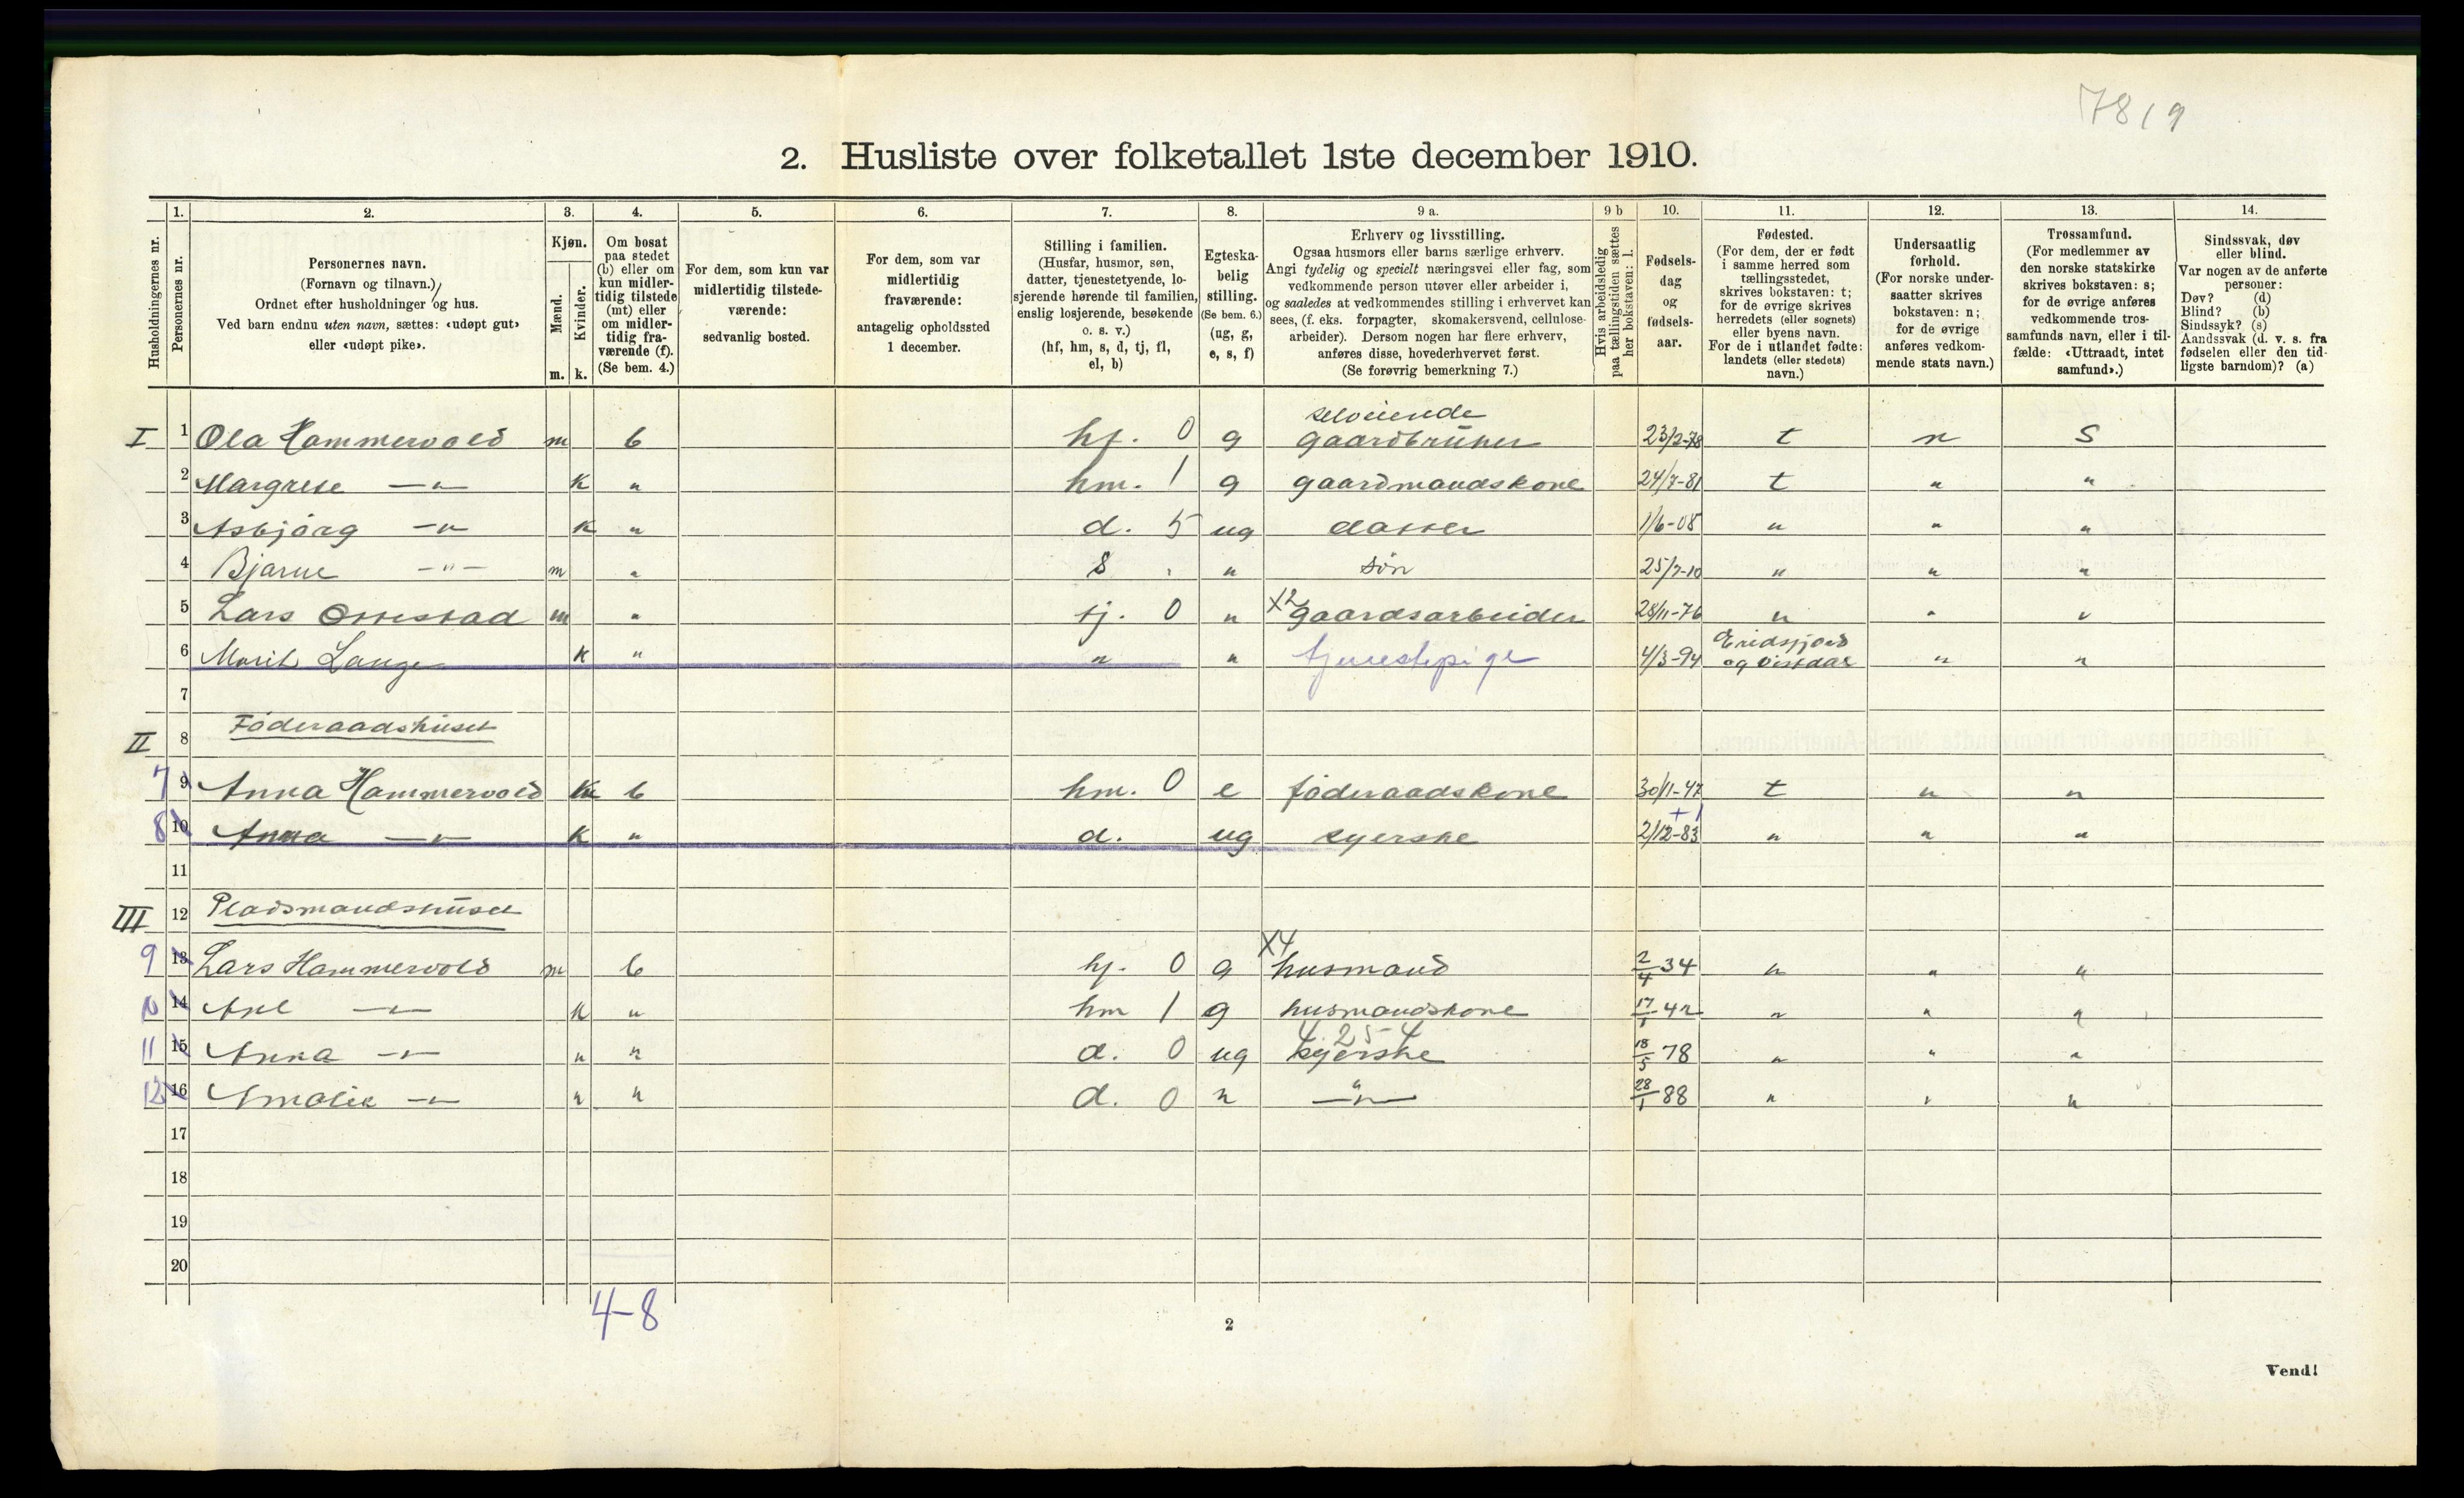 7819
2. Husliste over folketallet 1ste december 1910.
Husholdningernes nr.
1.
Personernes nr.
2.
Personernes navn.
(Fornavn og tilnavn.)
Ordnet efter husholdninger og hus.
Ved barn endnu uten navn, sættes: «udøpt gut»
eller «udøpt pike».
3.
Kjøn.
Mænd.
Kvinder.
m. k.
4.
Om bosat
paa stedet
(b) eller om
kun midler-
tidig tilstede
(mt) eller
om midler-
tidig fra-
værende (f).
(Se bem. 4.)
5.
For dem, som kun var
midlertidig tilstede-
værende:
sedvanlig bosted.
6.
For dem, som var
midlertidig
fraværende:
antagelig opholdssted
1 december.
7.
Stilling i familien.
(Husfar, husmor, søn,
datter, tjenestetyende, lo-
sjerende hørende til familien,
enslig losjerende, besøkende
o. s. v.)
(hf, hm, s, d, tj, fl,
el, b)
8.
Egteska-
belig
stilling.
(Se bem. 6.)
(ug, g,
e, s, f)
9 a.
Erhverv og livsstilling.
Ogsaa husmors eller barns særlige erhverv.
Angi tydelig og specielt næringsvei eller fag, som
vedkommende person utøver eller arbeider i,
og saaledes at vedkommendes stilling i erhvervet kan
sees, (f. eks. forpagter, skomakersvend, cellulose-
arbeider). Dersom nogen har flere erhverv,
anføres disse, hovederhvervet først.
(Se forøvrig bemerkning 7.)
9 b
Hvis arbeidsledig
paa tællingstiden sættes
her bokstaven: l.
10.
Fødsels-
dag
og
fødsels-
aar.
11.
Fødested.
(For dem, der er født
i samme herred som
tællingsstedet,
skrives bokstaven: t;
for de øvrige skrives
herredets (eller sognets)
eller byens navn.
For de i utlandet fødte:
landets (eller stedets)
navn.)
12.
Undersaatlig
forhold.
(For norske under-
saatter skrives
bokstaven: n;
for de øvrige
anføres vedkom-
mende stats navn.)
13.
Trossamfund.
(For medlemmer av
den norske statskirke
skrives bokstaven: s;
for de øvrige anføres
vedkommende tros-
samfunds navn, eller i til-
fælde: «Uttraadt, intet
samfund».)
14.
Sindssvak, døv
eller blind.
Var nogen av de anførte
personer:
Døv? (d)
Blind? (b)
Sindssyk? (s)
Aandssvak (d. v. s. fra
fødselen eller den tid-
ligste barndom)? (a)
selveiende
I 1 Ola Hammervold m b hf. 0 g gaardbruker 23/2-78 t n S
2 Margrete —〃— k 〃 hm. 1 g gaardmandskone 24/7-81 t 〃 〃
3 Asbjørg —〃— k 〃 d. 5 ug datter 1/6-08 〃 〃 〃
4 Bjarne —〃— m 〃 s 〃 søn 25/7-10 〃 〃 〃
5 Lars Ottestad m 〃 tj. 0 〃 X2 gaardsarbeider 28/11-76 〃 〃 〃
6 Marit Lange k 〃 〃 〃 tjenestepige 4/3-94 Eridsfjord og Vistdal 〃 〃
7
Føderaadshuset
II 8
7 9 Anna Hammervold k b hm. 0 e føderaadskone 30/11-47 t 〃 〃
8 10 Anna —〃— k 〃 d. ug syerske 2/12-83 〃 〃 〃
11
III 12 Pladsmandshuset
9 13 Lars Hammervold m b hf. 0 g X4 husmand 2/4 34 〃 〃 〃
10 14 Ane —〃— k 〃 hm 1 g husmandskone 17/1 42 〃 〃 〃
4254
11 15 Anna —〃— 〃 〃 d. 0 ug syerske 18/5 78 〃 〃 〃
12 16 Amalie —〃— 〃 〃 d. 0 〃 —〃— 28/1 88 〃 〃 〃
17
18
19
20
4-8
2
Vend!